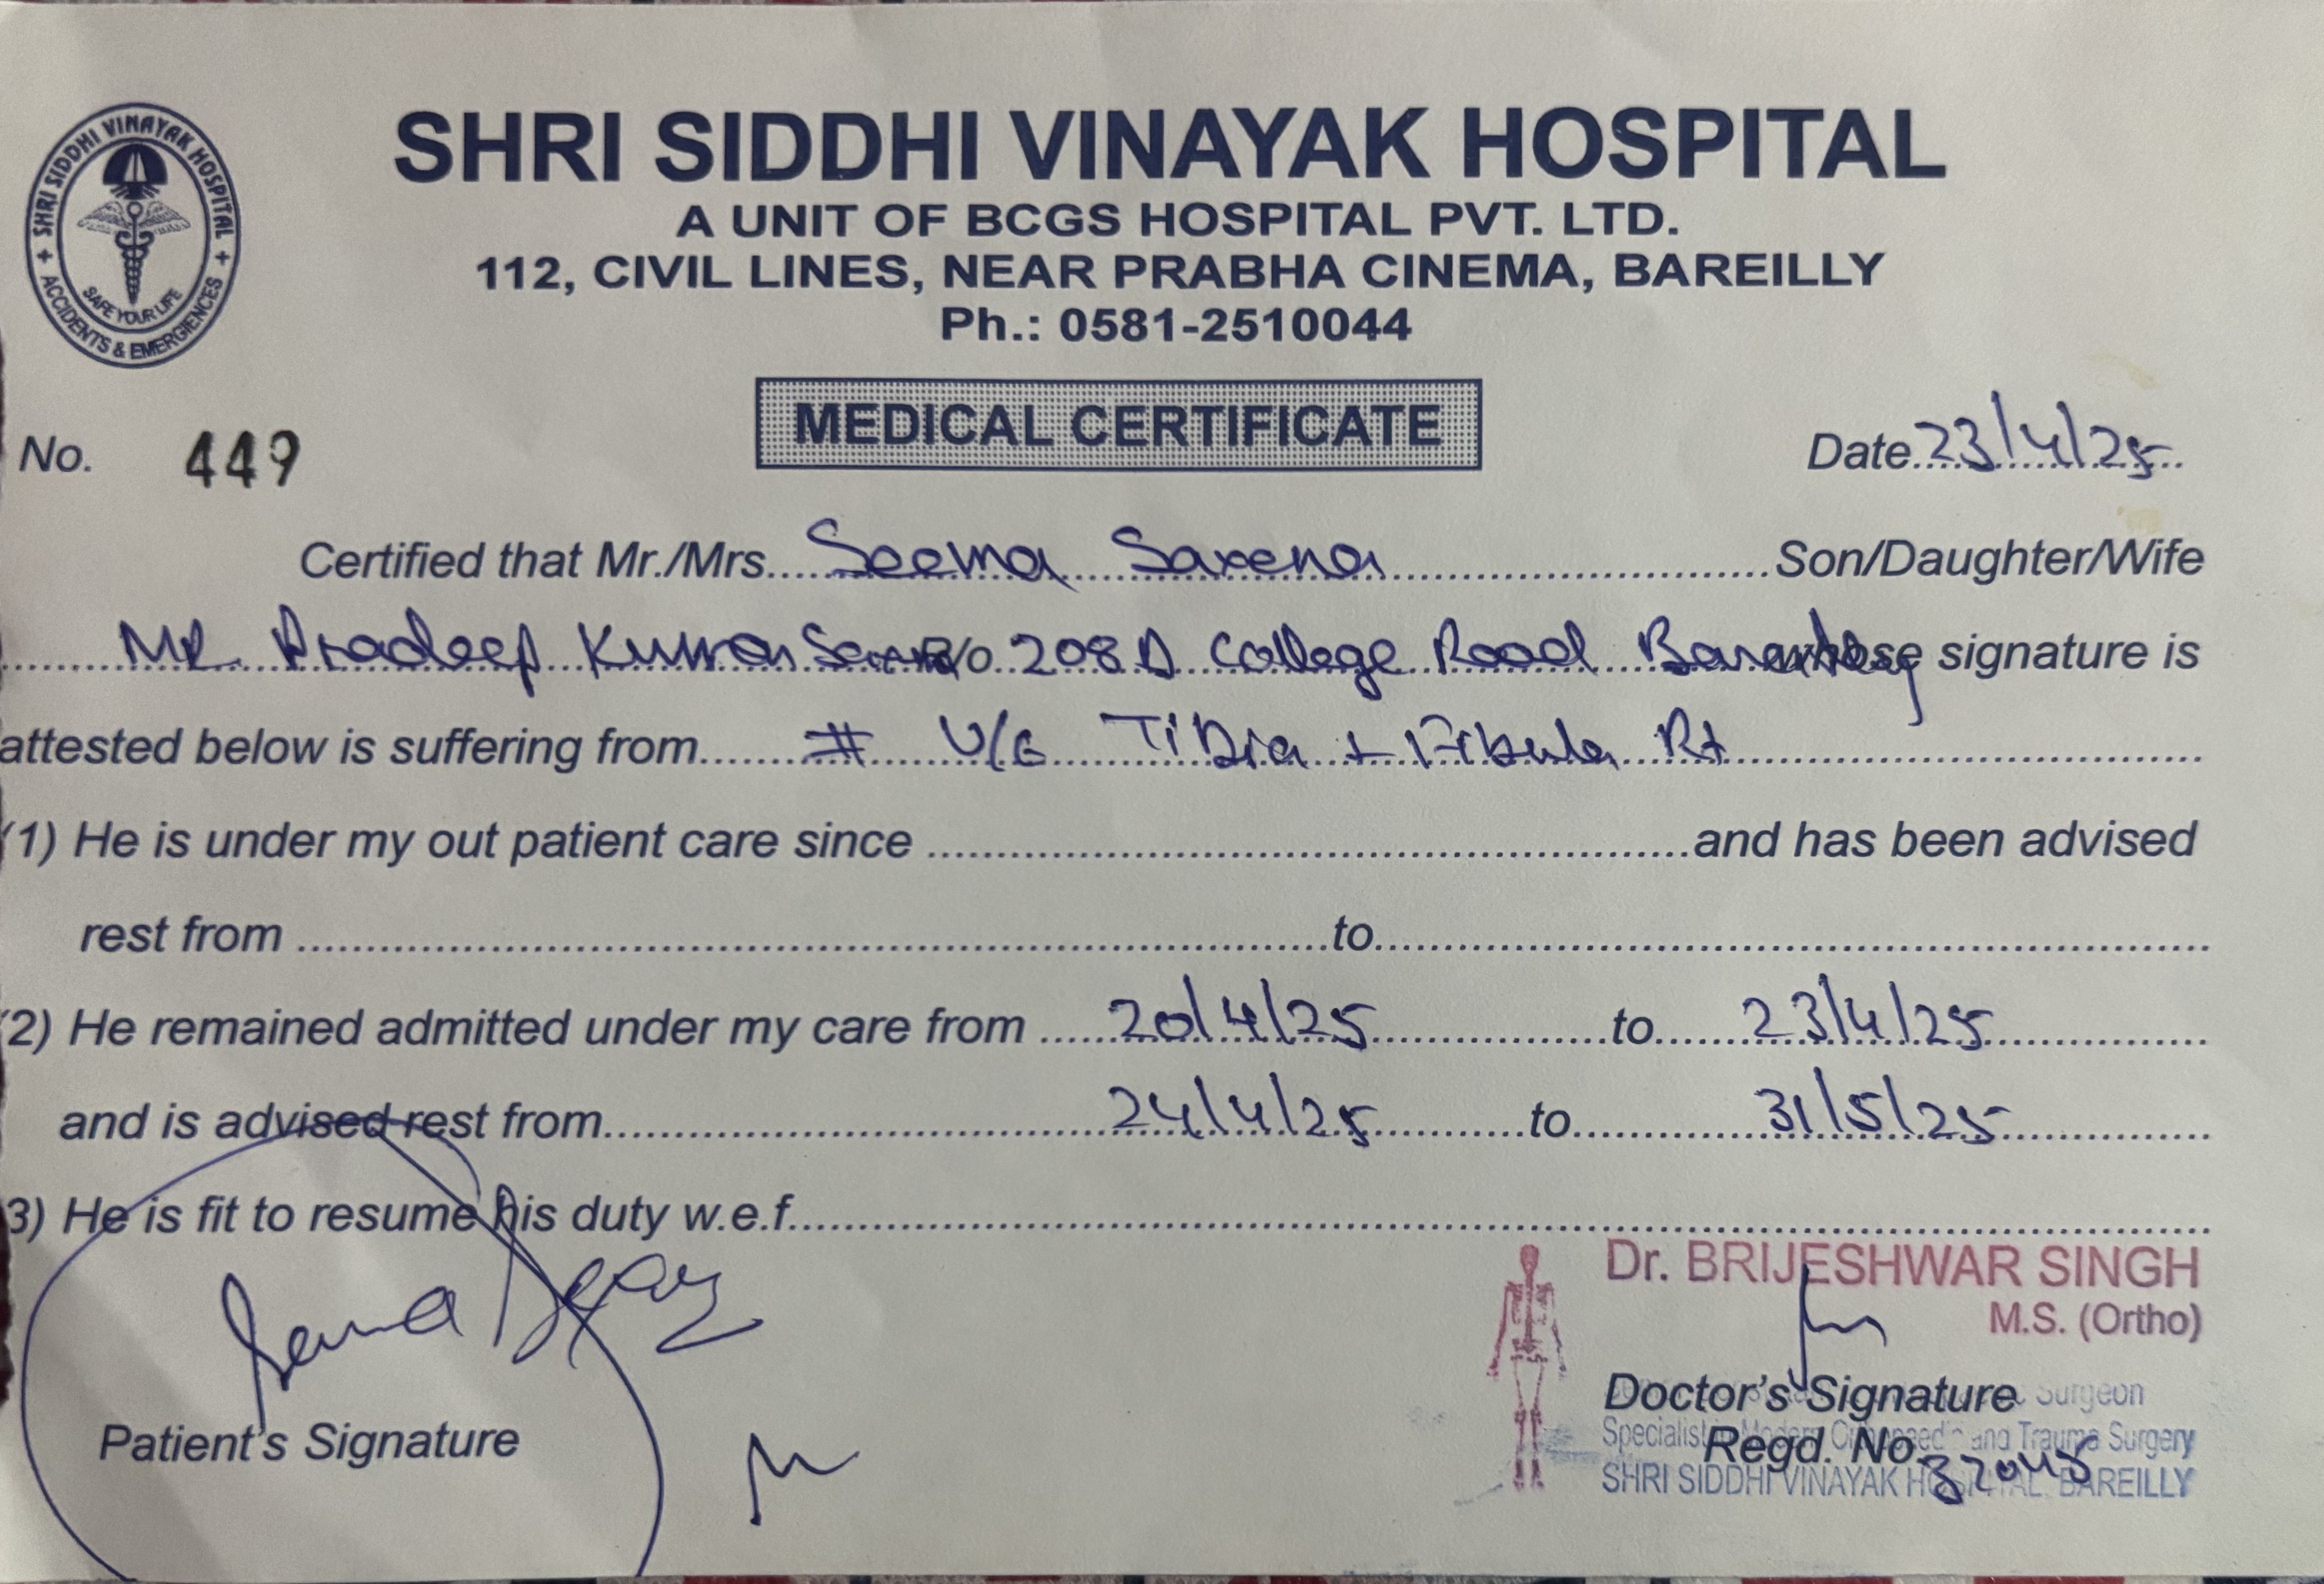 SHRI SIDDHI VINAYAK HOSPITAL
ACCIDENTS & EMERGIENCES
SAFE YOUR LIFE
SHRI SIDDHI VINAYAK HOSPITAL
A UNIT OF BCGS HOSPITAL PVT. LTD.
112, CIVIL LINES, NEAR PRABHA CINEMA, BAREILLY
Ph.: 0581-2510044
MEDICAL CERTIFICATE
No. 449 Date 23/4/25
Certified that Mr./Mrs. Seema Saxena Son/Daughter/Wife
Mr. Pradeep Kumar R/o 208 College Road Bareilly whose signature is
attested below is suffering from # Tibia + Fibula Rt
(1) He is under my out patient care since and has been advised
rest from to
(2) He remained admitted under my care from 20/4/25 to 23/4/25
and is advised rest from 24/4/25 to 31/5/25
3) He is fit to resume his duty w.e.f.
Dr. BRIJESHWAR SINGH
M.S. (Ortho)
Doctor's Signature
Surgeon
Specialist and Trauma Surgery
Regd. No.
SHRI SIDDHI VINAYAK HOSPITAL, BAREILLY
Patient's Signature